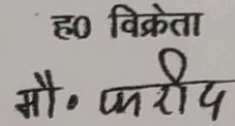 ह0 विक्रेता
मौ. फरीद